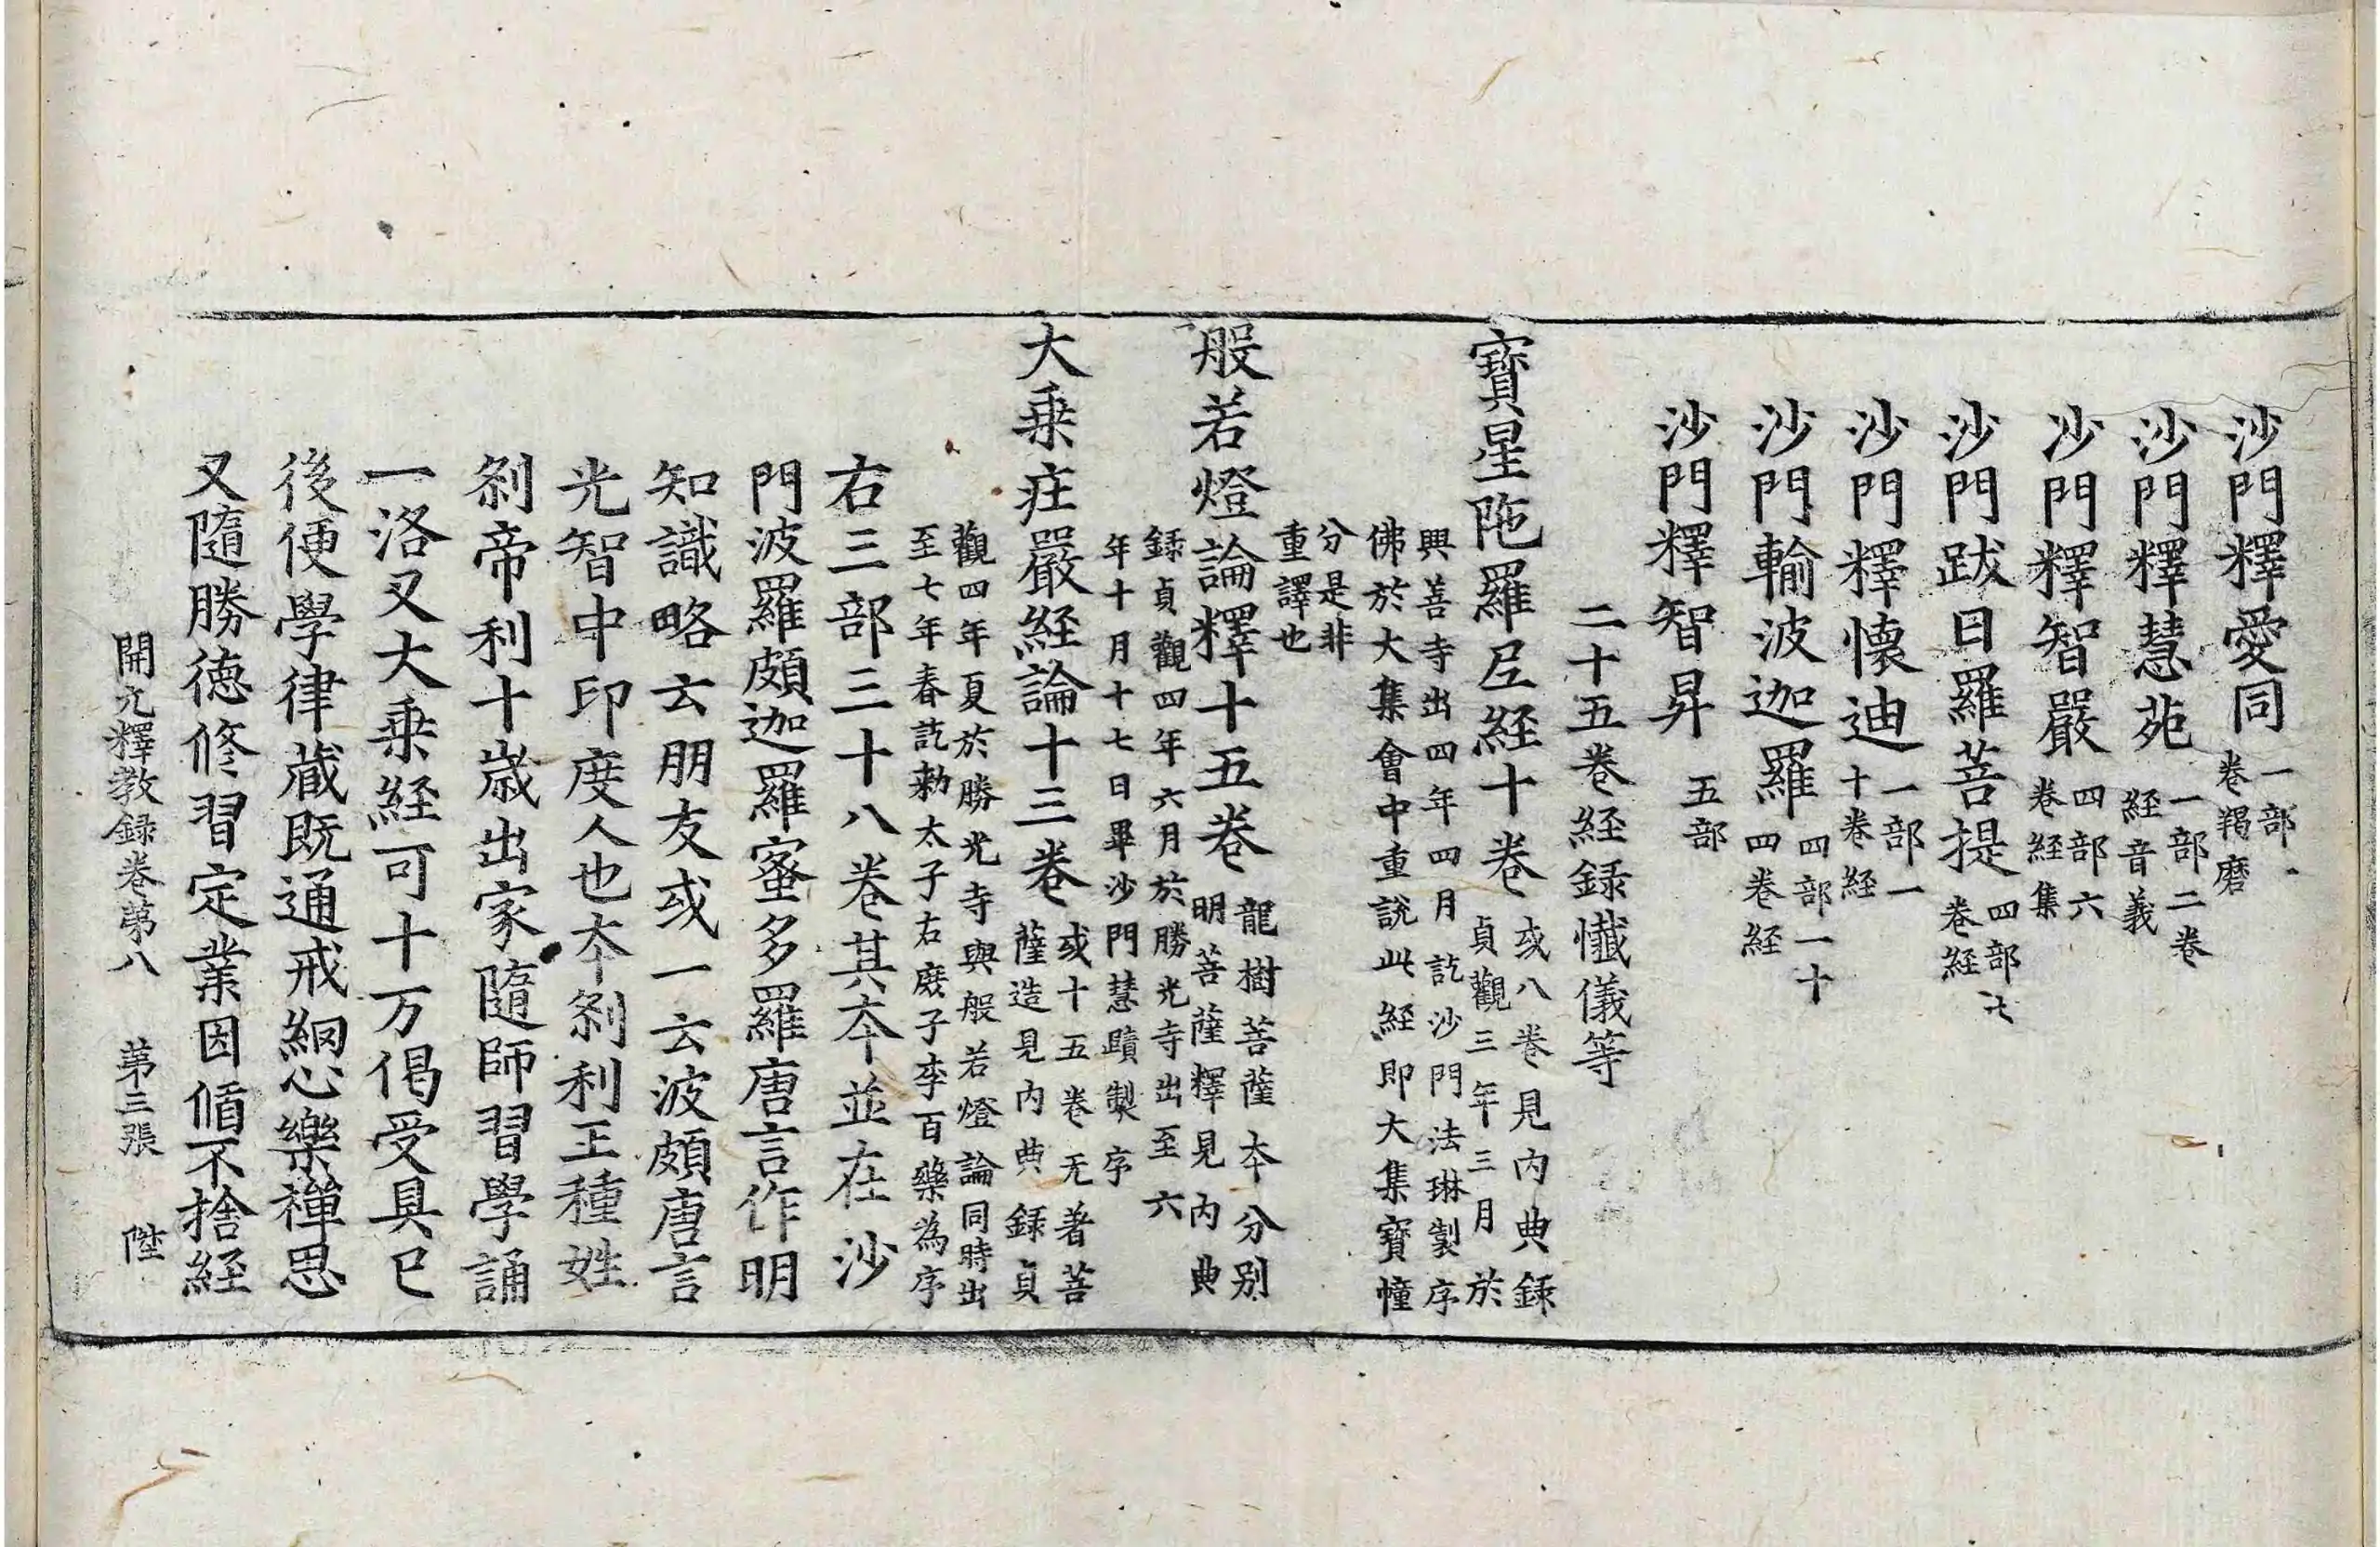 沙門釋愛同一部一
卷羯磨
沙門釋慧苑一部二卷
経音義
沙門釋智嚴四部六
卷経集
沙門跋日羅菩提四部七
卷経
沙門釋懷迪一部一
十卷経
沙門輸波迦羅四部一十
四卷経
沙門釋智昇五部
二十五卷経録懺儀等
寶星陁羅尼経十卷或八卷見內典録
貞觀三年三月於
興善寺出四年四月訖沙門法琳製序
佛於大集會中重說此経即大集寶幢
分是非
重譯也
般若燈論釋十五卷龍樹菩薩夲分別
明菩薩釋見內典
録貞觀四年六月於勝光寺出至六
年十月十七日畢沙門慧賾製序
大乗庄嚴経論十三卷或十五卷无著菩
薩造見內典録貞
觀四年夏於勝光寺與般若燈論同時出
至七年春訖勑太子右庶子李百藥為序
右三部三十八卷其夲並在沙
門波羅頗迦羅蜜多羅唐言作明
知識略云朋友或一云波頗唐言
光智中印度人也夲剎利王種姓
剎帝利十歳出家隨師習學誦
一洛叉大乗経可十万偈受具已
後便學律蔵既通戒綱心樂禪思
又隨勝徳修習定業因循不捨経
開元釋教録卷苐八 苐三張 陞